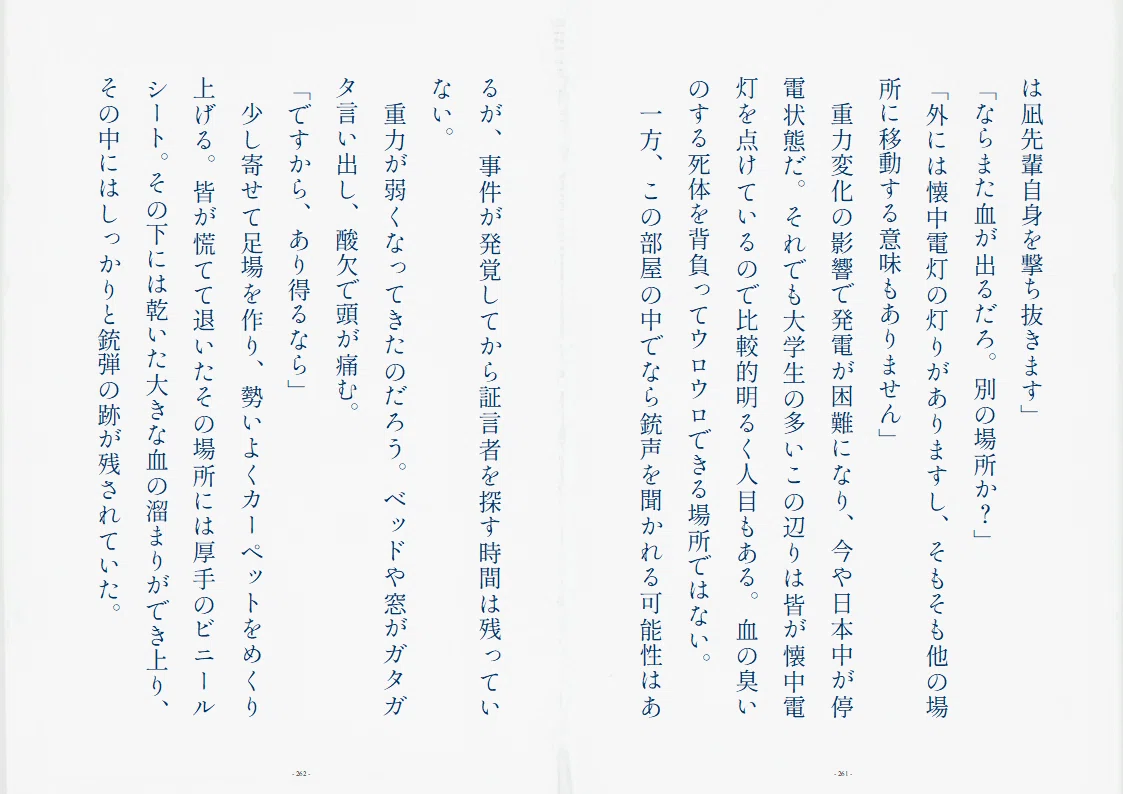 は凪先輩自身を撃ち抜きます」
「ならまた血が出るだろ。別の場所か？」
「外には懐中電灯の灯りがありますし、そもそも他の場
所に移動する意味もありません」
　重力変化の影響で発電が困難になり、今や日本中が停
電状態だ。それでも大学生の多いこの辺りは皆が懐中電
灯を点けているので比較的明るく人目もある。血の臭い
のする死体を背負ってウロウロできる場所ではない。
　一方、この部屋の中でなら銃声を聞かれる可能性はあ
- 261 -
るが、事件が発覚してから証言者を探す時間は残ってい
ない。
　重力が弱くなってきたのだろう。ベッドや窓がガタガ
タ言い出し、酸欠で頭が痛む。
「ですから、あり得るなら」
　少し寄せて足場を作り、勢いよくカーペットをめくり
上げる。皆が慌てて退いたその場所には厚手のビニール
シート。その下には乾いた大きな血の溜まりができ上り、
その中にはしっかりと銃弾の跡が残されていた。
- 262 -